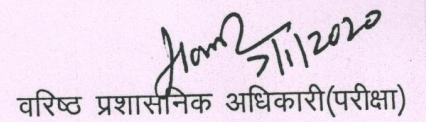 7/1/2020
वरिष्ठ प्रशासनिक अधिकारी(परीक्षा)